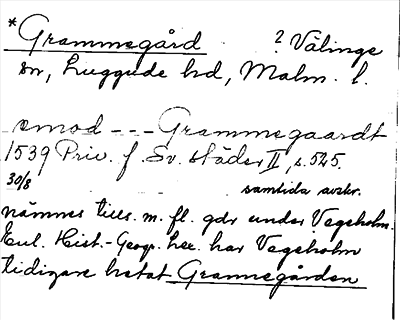 *Grammegård ? Välinge
sn, Luggude hd, Malm. l.
emod --- Grammegaardt
1539 Priv. f. Sv. städer II, s. 525.
30/8 samtida avskr.
nämnes tills. m. fl. gdr under Vegeholm.
Enl. Hist.-Geogr. Lex. har Vegeholm
tidigare hetat Grammegården